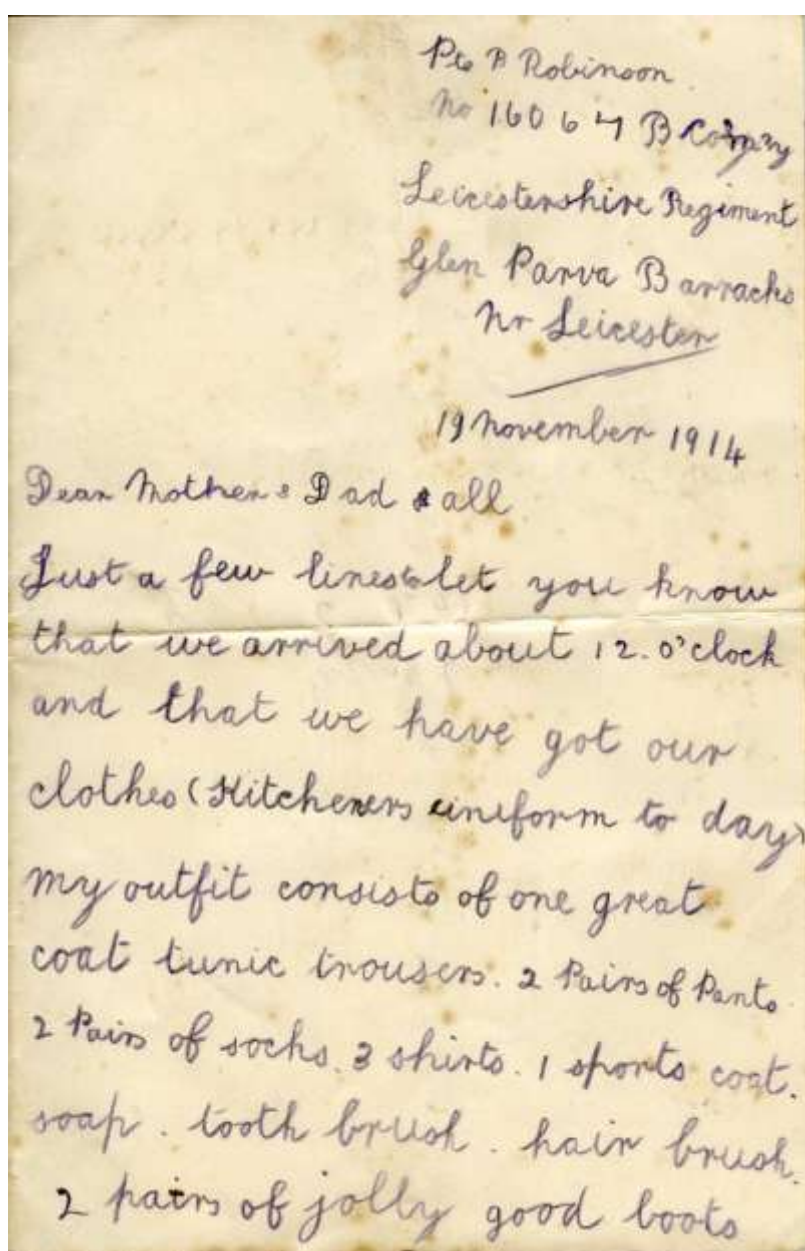 Pte B Robinson
No 16064 B Compny
Leicestershire Regiment
Glen Parva Barracks
Nr Leicester
19 November 1914
Dear Mother & Dad & all
Just a few lines to let you know
that we arrived about 12.o'clock
and that we have got our
clothes (Kitcheners uniform to day)
my outfit consists of one great
coat tunic trousers. 2 Pairs of Pants
2 Pairs of socks. 3 shirts. 1 sports coat.
soap. tooth brush. hair brush.
2 pairs of jolly good boots